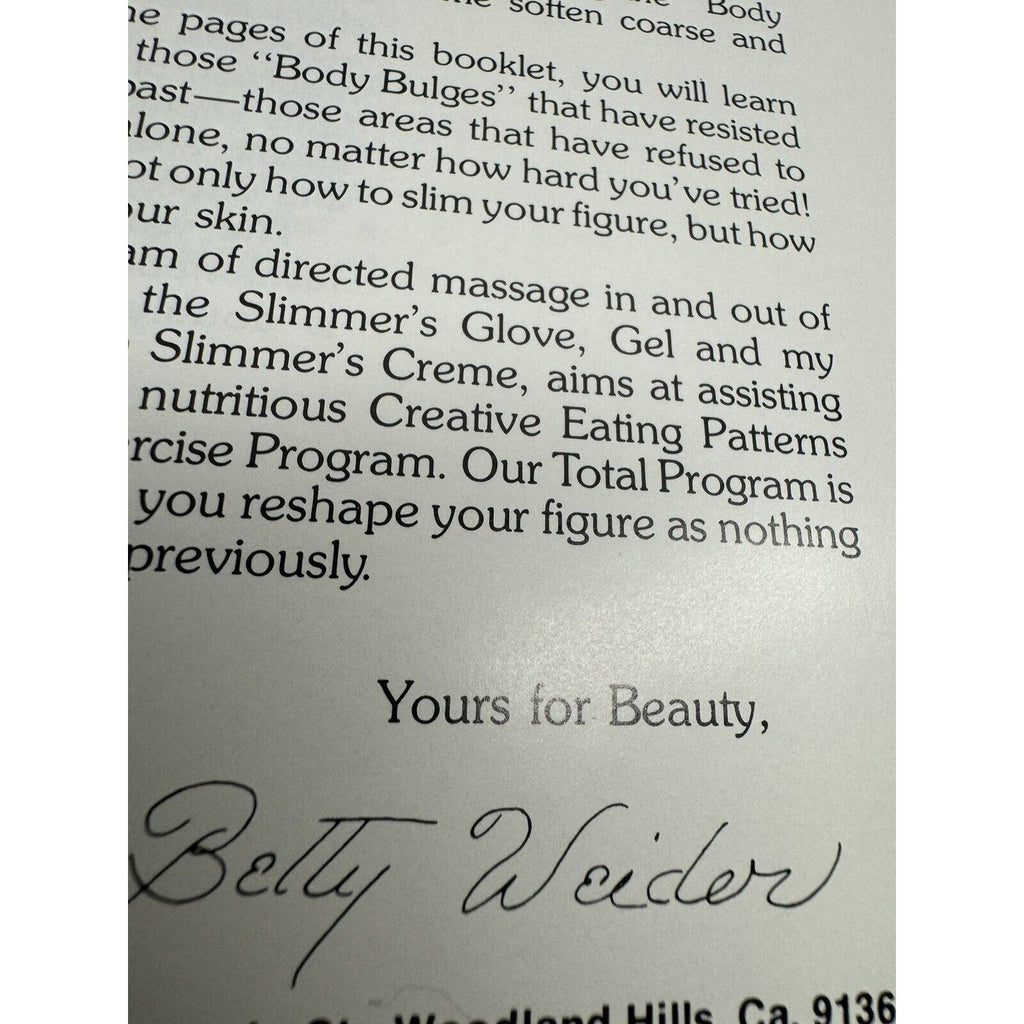 Body
soften coarse and
pages of this booklet, you will learn
those “Body Bulges” that have resisted
past—those areas that have refused to
alone, no matter how hard you’ve tried!
not only how to slim your figure, but how
your skin.
of directed massage in and out of
the Slimmer’s Glove, Gel and my
Slimmer’s Creme, aims at assisting
nutritious Creative Eating Patterns
rcise Program. Our Total Program is
you reshape your figure as nothing
previously.
Yours for Beauty,
Betty Weider
Woodland Hills, Ca. 9136